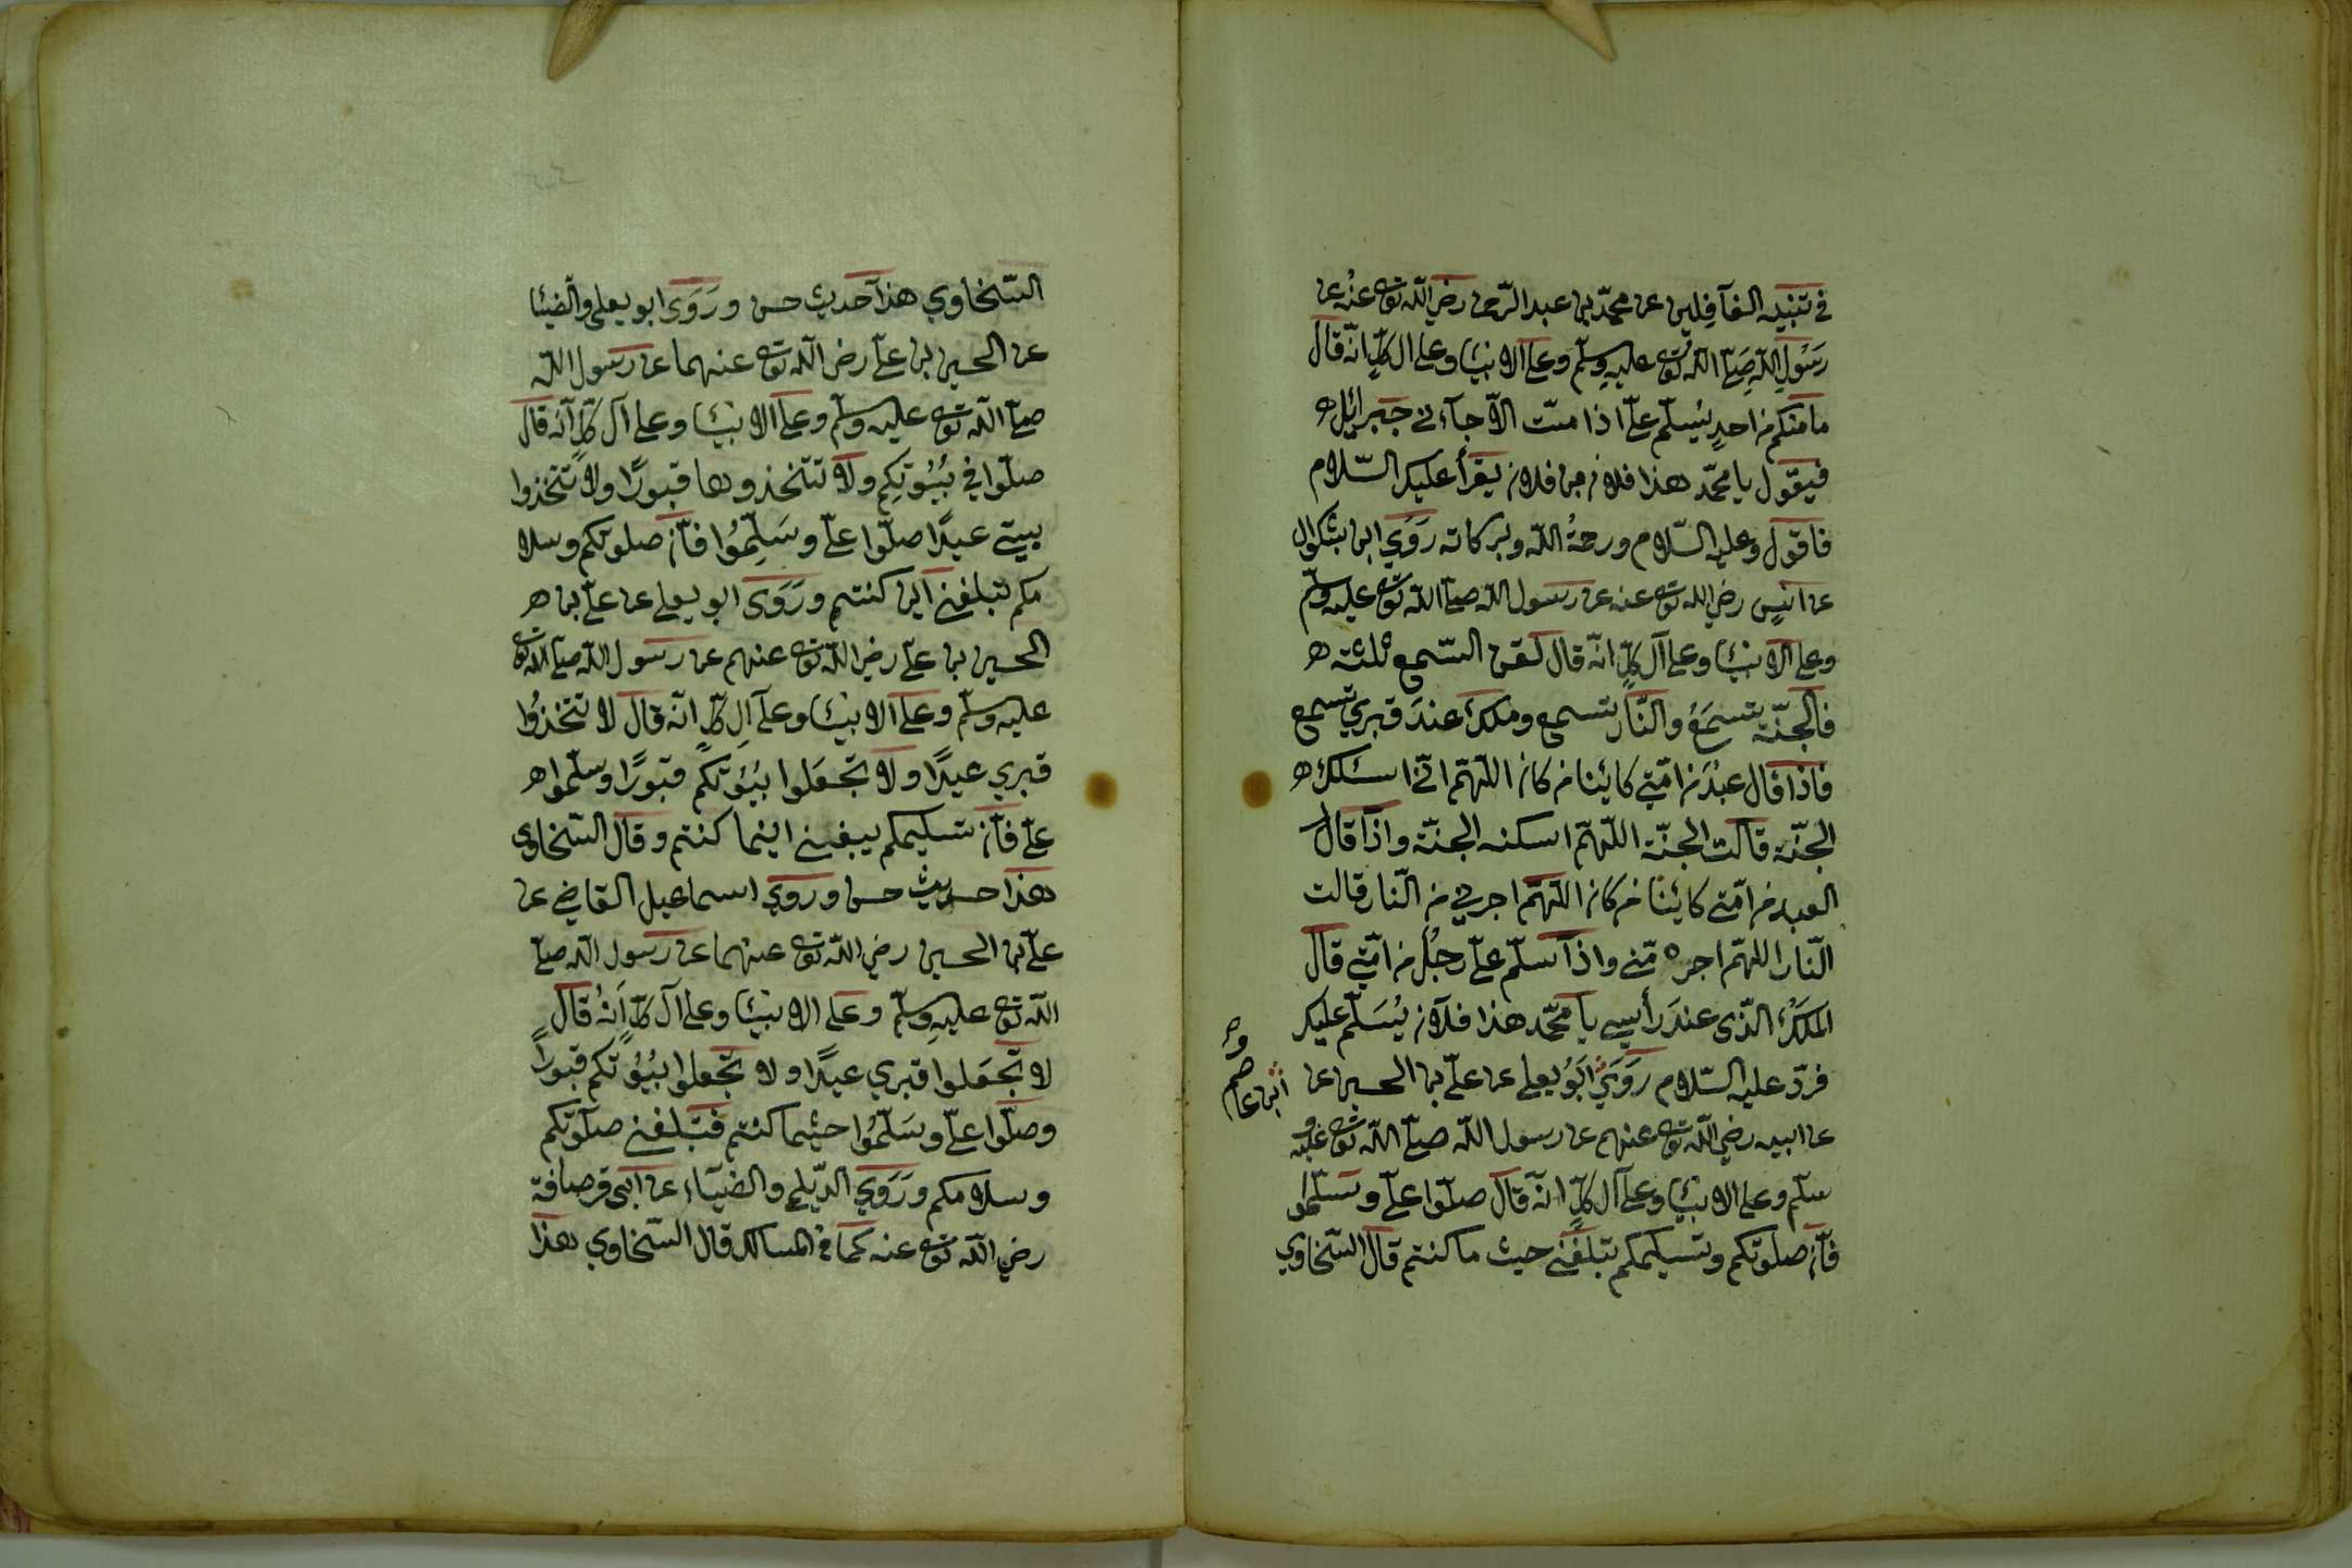 في تنبيه الغآفلين عن محمّد بن عبد الرّحمن رضي اللّه تع عنه عن
رَسُولِ اللّه صَلّى اللّه تع عليهِ وسلّم وعلى الانبيَٓا وعلى ال كلٍّ انّه قال
ما منكم من احدٍ يُسلّم علىّ اذا متّ الّا جآءني جبرائل
فيقول يا محمّد هذا فلان بن فلان يقرأ عليك السّلام
فاقول وعليه السّلام ورحمةُ اللّه وبركاته رَوَي ابن بشكوال
عن انسٍ رضي اللّه تع عنه عن رسول اللّه صلّى اللّه تع عليه وسلّم
وعلى الانبيَٓا وعلى آل كلٍّ انّه قال لقن السّمع ثلثة
فالجنّة تسمَعُ والنّار تسمع وملك عندَ قبري تسمع
فاذا قال عبْدٌ من امّتي كائنا من كان اللّهمّ انّي اسئلك
الجنّة قالت الجنّة اللّهمّ اسكنه الجنّة واذا قال
العبد من امّتي كائنًا من كان اللّهمّ اجرني من النّار قالت
النّار اللهمّ اجره منّي واذا سلّم علىّ رجُل من امّتي قال
الملَكُ الّذي عندَ رأسِي يا محمّد هذا فلان يُسَلّم عليك
فردّ عليه السّلام رَوَي اَبُو يعلى عن علىّ بن الحسين عن
وابن ابى عاصم
عن ابيه رضي اللّه تع عنهم عن رسول اللّه صلّى اللّه تع عليه و
سلم وعلى الانبيَٓا وعلى آل كلٍّ انّه قال صلّوا علىّ وسَلّموا
فانّ صلوتكم وتسليمكم تبلغني حيث ما كنتم قال السّخاوي
السّخاوي هذا حديث حسن ورَوَى ابو يعلى والضّيَٓا
عن الحسين بن علىّ رضي اللّه تع عنهما عن رسول اللّه
صلّى اللّه تع عليه وسلّم وعلى الانبيَٓا وعلى آل كلٍّ انّه قال
صلّوا في بُيُوتكِم ولا تتّخذوها قبورًا ولا تتّخذوا
بيتي عيدًا صلّوا علىّ وسَلِّمُوا فانّ صلوتكم وسلا
مكم تبلغني اين كنتم ورَوَى ابو يعلى عن علىّ بن
الحسين بن علىّ رضي اللّه تع عنهم عن رسول اللّه صلّى اللّه تع
عليه وسلّم وعلى الانبيَٓا وعلى آلِ كلٍّ انّه قال لا تتّخذُوا
قبري عيدًا ولا تجعَلوا بُيُوتكم قبورًا وسلّموا
علىّ فانّ تسليمكم يبغني اينما كنتم وقال السّخاوي
هذا حديث حسن وروي اسماعيل القاضي عن
علىّ بن الحسين رضي اللّه تع عنهما عن رسول اللّه صلّى
اللّه تع عليهِ وسلّم وعلى الانبيَٓا وعلى آل كلٍّ اَنّهُ قال
لا تجعَلوا قبري عيدًا ولا تجعلوا بُيُوتكم قبورًا
وصلّوا علىّ وسَلّمُوا حيثما كنتم فتبلغني صلوتكم
وسلامكم ورَوَي الدّيلمي والضيَٓاء عن ابى قرصافة
رضي اللّه تع عنه كما في المسالك قال السّخاوي هذا